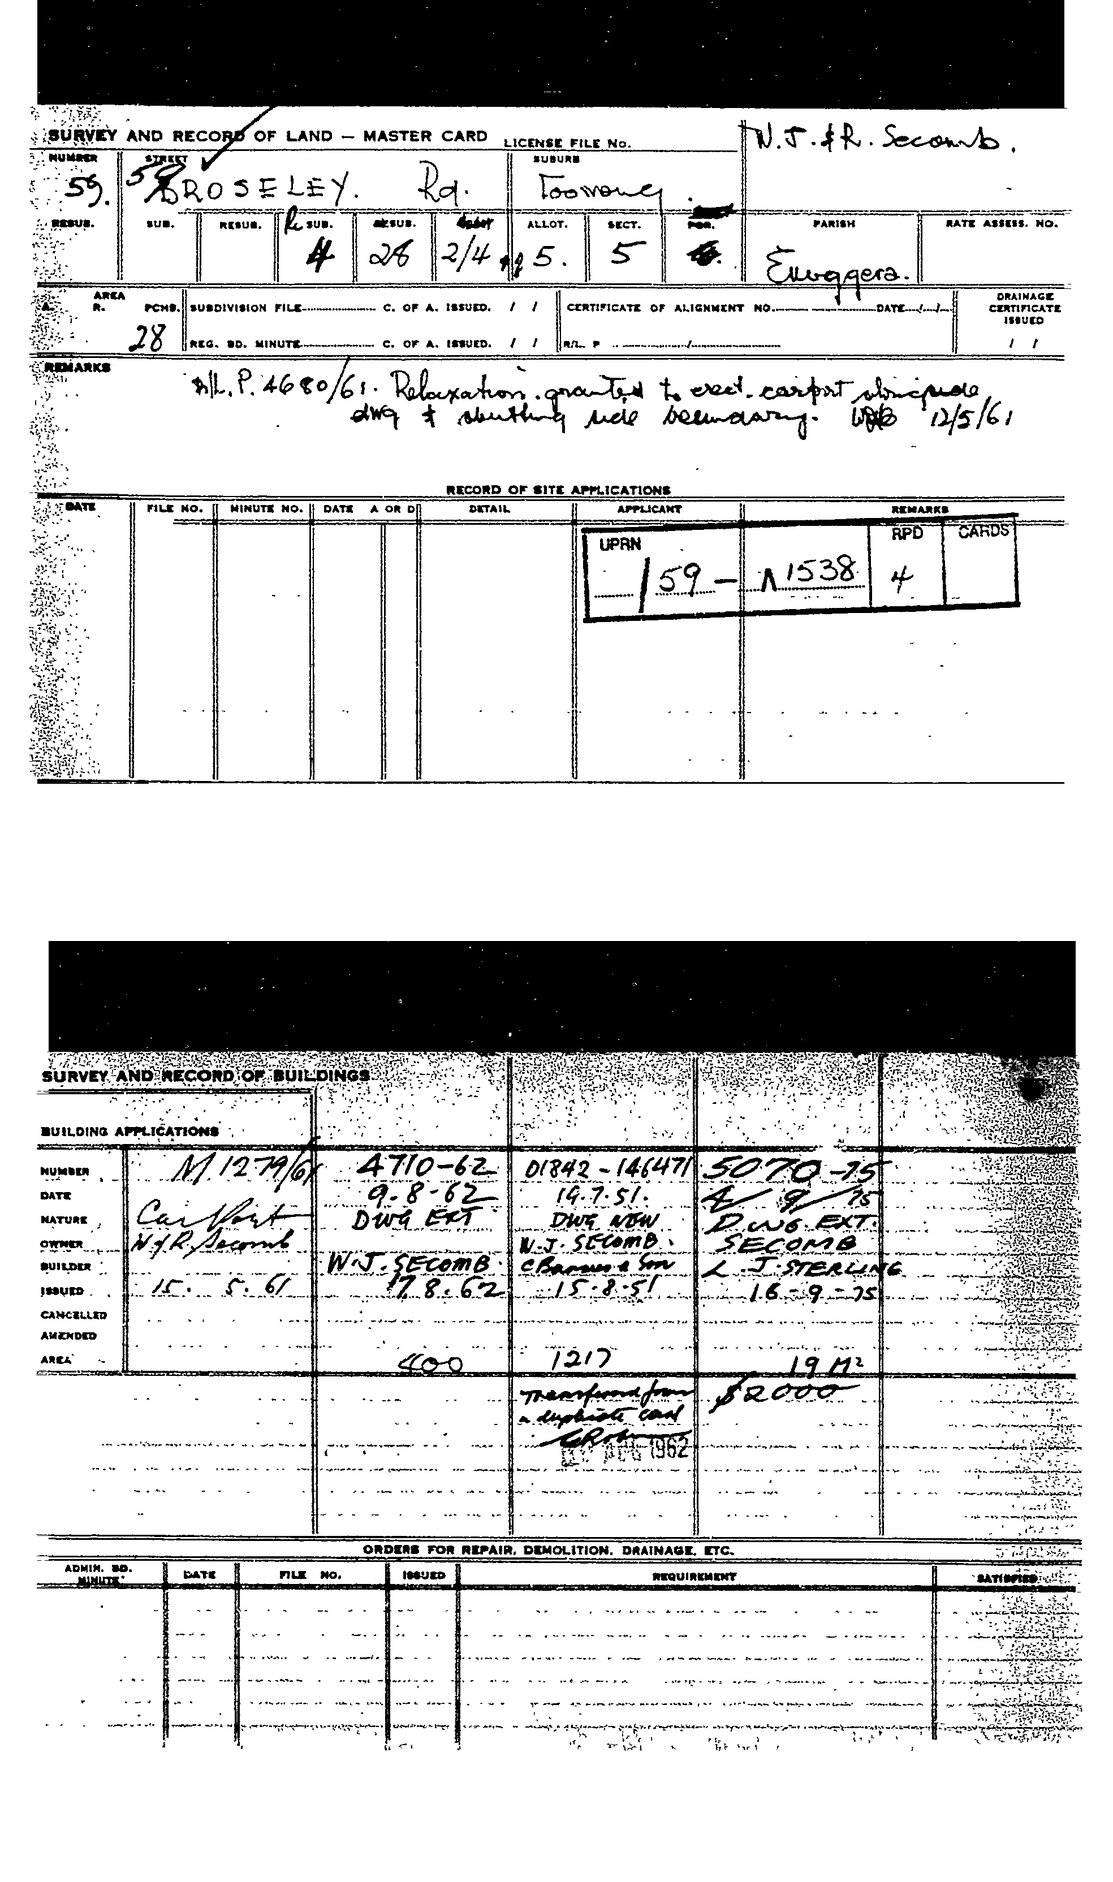 SURVEY AND RECORD OF LAND – MASTER CARD LICENSE FILE No. W. J. & R. Secomb.
NUMBER STREET SUBURB
59. 59 ROSELEY. Rd. Toowong
RESUB. SUB. RESUB. Re SUB. RESUB. ALLOT. SECT. POR. PARISH RATE ASSESS. NO.
4 28 2/4 of 5. 5 Enoggera.
AREA
A. R. PCHS. SUBDIVISION FILE C. OF A. ISSUED. / / CERTIFICATE OF ALIGNMENT NO. DATE / / DRAINAGE CERTIFICATE ISSUED
28 REG. BD. MINUTE C. OF A. ISSUED. / / R/L. P / / /
REMARKS
R/L. P. 4680/61. Relaxation granted to erect carport alongside
dwg & abutting side boundary. 12/5/61
RECORD OF SITE APPLICATIONS
DATE FILE NO. MINUTE NO. DATE A OR D DETAIL APPLICANT REMARKS
UPRN RPD CARDS
/ 59 – 1538 4
SURVEY AND RECORD OF BUILDINGS
BUILDING APPLICATIONS
NUMBER M.1279/61 4710-62 D1842-146471 5070-75
DATE 9.8.62 19.7.51. 4/9/75
NATURE Car Port DWG EXT DWG NEW DWG. EXT.
OWNER W J R. Secomb W. J. SECOMB. SECOMB
BUILDER W. J. SECOMB. & Son L J. STERLING
ISSUED 15. 5. 61 17.8.62 15.8.51 16-9-75
CANCELLED
AMENDED
AREA 400 1217 19 M²
Transferred from $2000
a duplicate card
AUG 1962
ORDERS FOR REPAIR, DEMOLITION, DRAINAGE, ETC.
ADMIN. BD. MINUTE DATE FILE NO. ISSUED REQUIREMENT SATISFIED